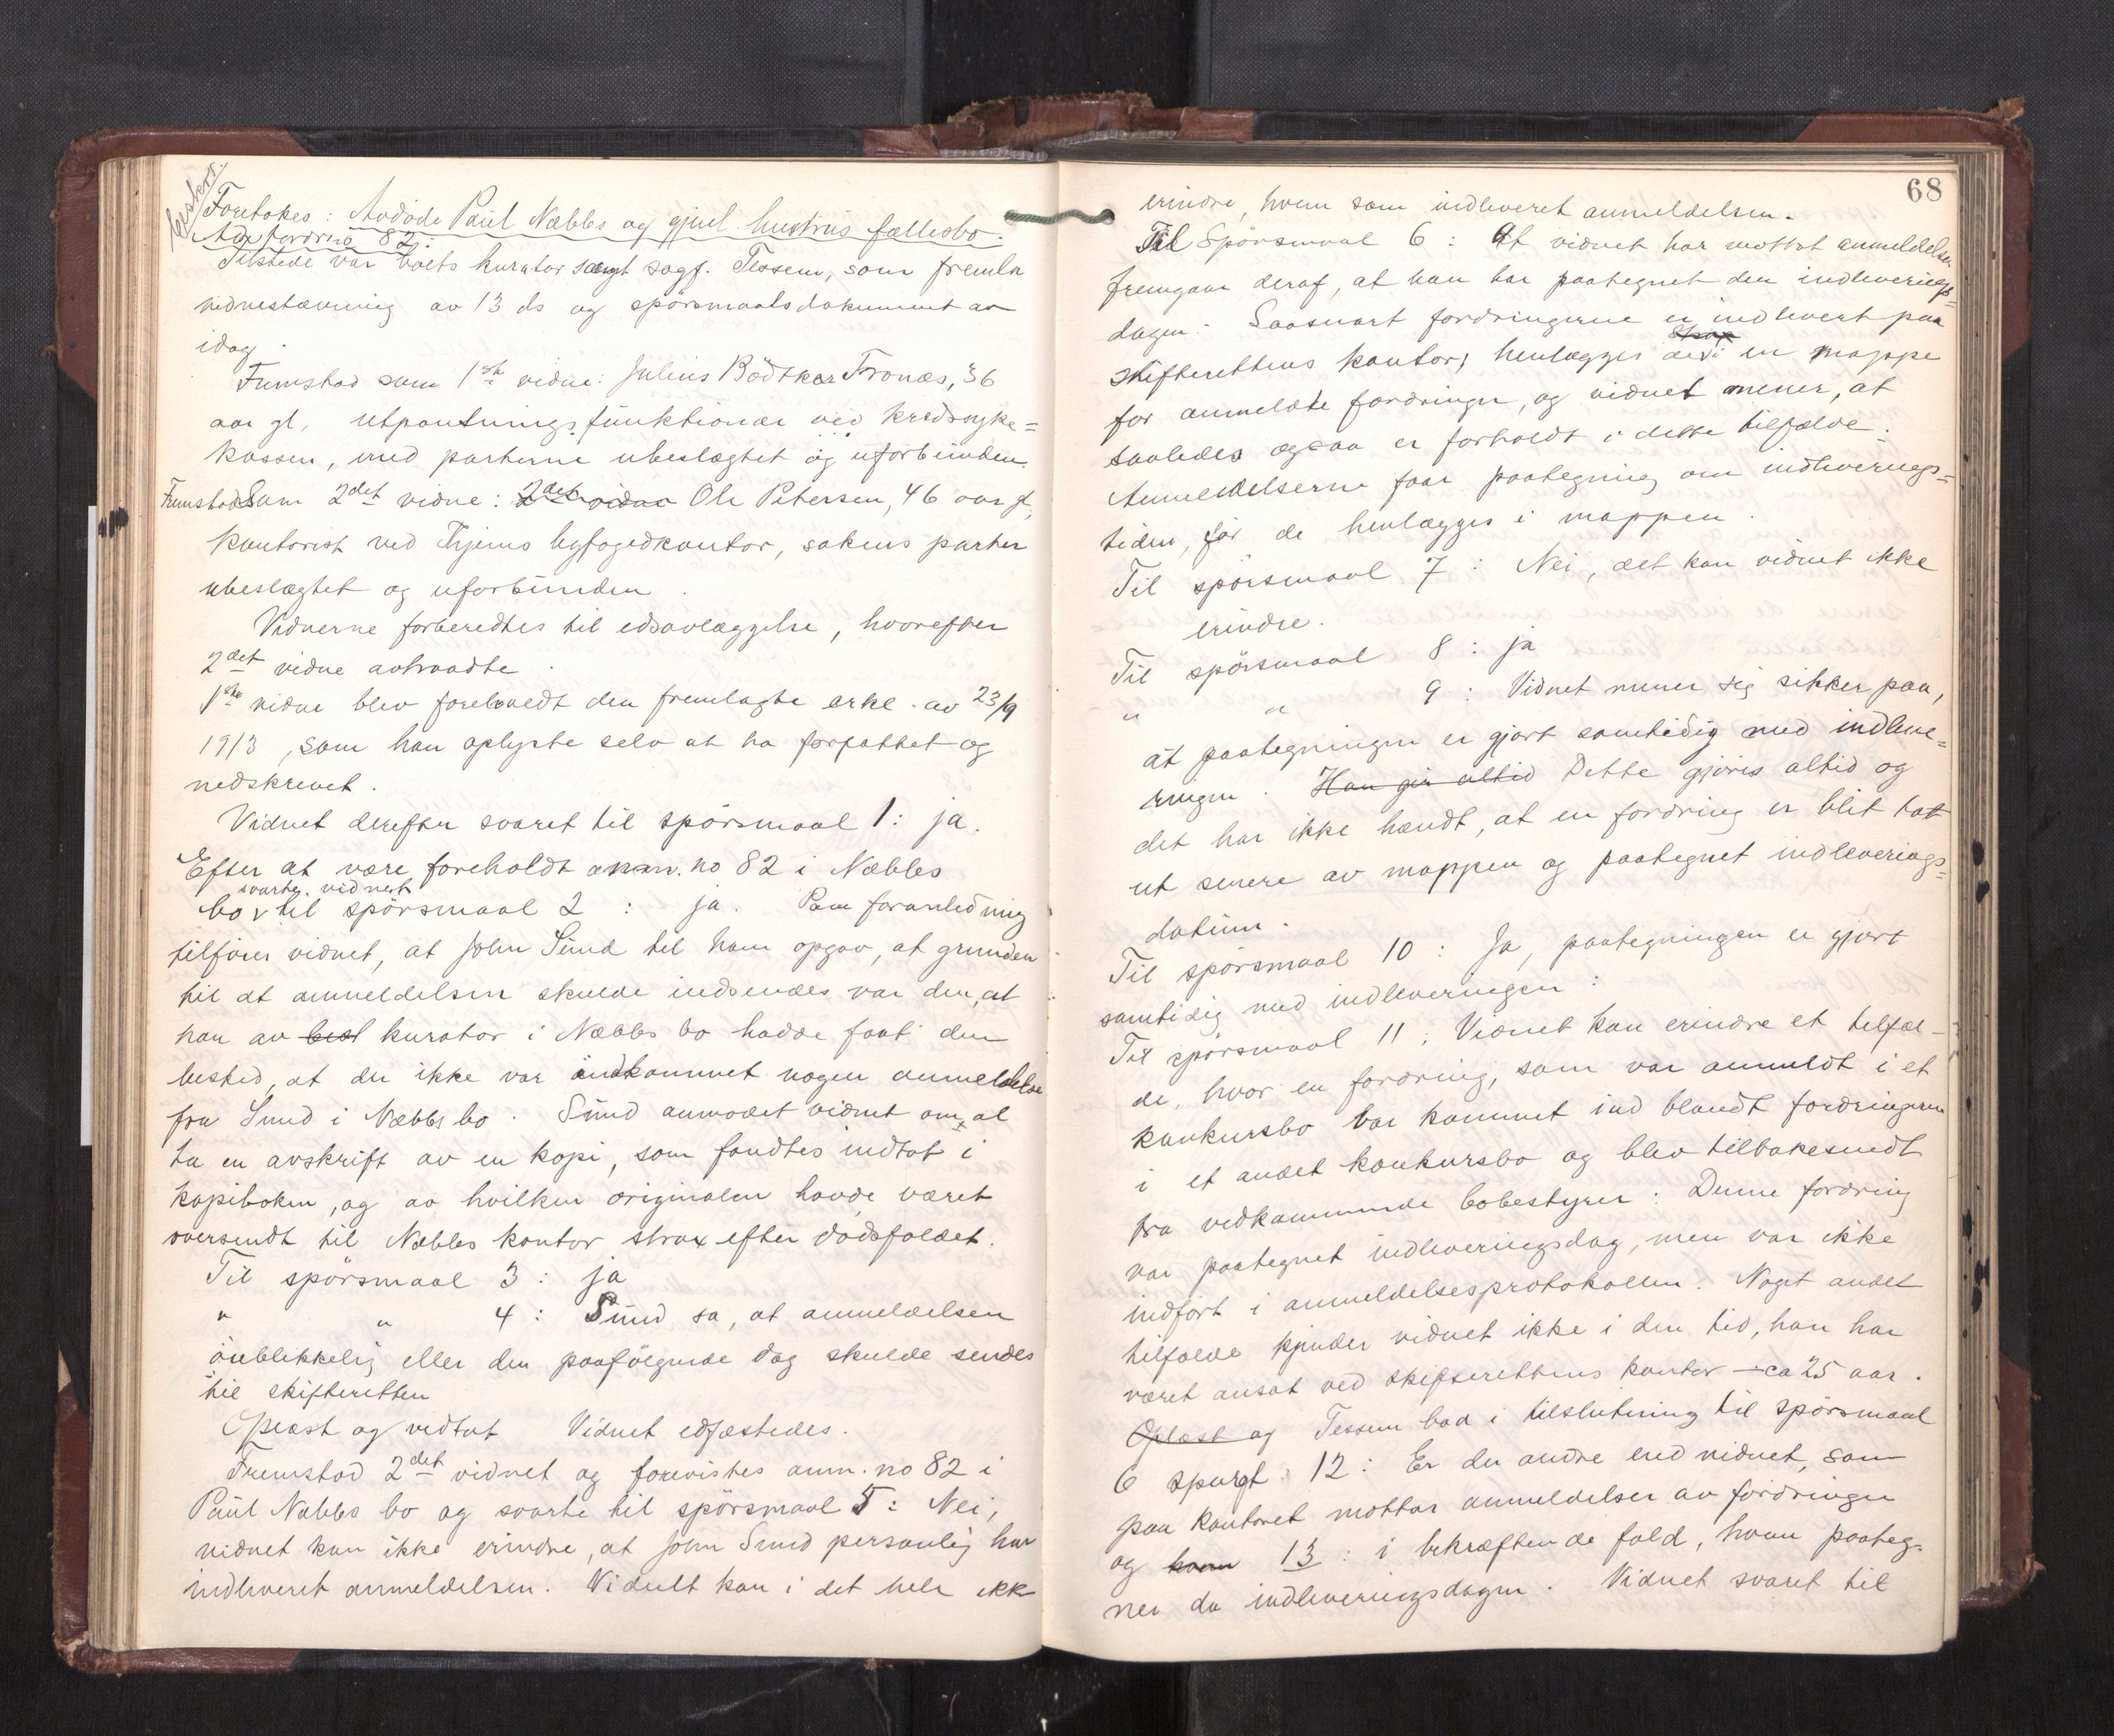 beskr.
Foretokes: Avdöde Paul Næbbs og gjenl. hustrus fællesbo.
fordring 82:
Tilstede var boets kurator samt sagf. Tessem, som fremla
vidnestævning av 13 ds og spörsmaalsdokument av
idag.
Fremstod som 1ste vidne: Julius Bödtker Tronæs, 36
aar gl, utpantningsfunktionær ved kredssyke=
kassen, med parterne ubeslægtet og uforbunden.
Fremstod Som 2det vidne: 2det vidne Ole Petersen, 46 aar gl,
kontorist ved Thjems byfogedkontor, sakens parter
ubeslægtet og uforbunden.
Vidnerne forberedtes til edsavlæggelse, hvorefter
2det vidne avtraadte.
1ste vidne blev forelevedt den fremlagte erkl. av 23/9
1913, som han oplyste selv at ha forfattet og
nedskrevet.
Vidnet derefter svaret til spörsmaal 1: ja.
Efter at være foreholdt anm. no 82 i Næbbs
svarte vidnet
bo v til spörsmaal 2: ja. Paa foranledning
tilföier vidnet, at John Sund til ham opgav, at grunden
til at anmeldelsen skulde indsendes var den, at
han av kurator i Næbbs bo hadde faat den
besked, at der ikke var indkommet nogen anmeldelse
fra Sund i Næbbs bo. Sund anmodet vidnet om at
ta en avskrift av en kopi, som fandtes indtat i
kopiboken, og av hvilken originalen havde været
oversendt til Næbbs kontor strax efter dödsfaldet.
Til spörsmaal 3: ja
" " 4: Sund sa, at anmeldelsen
öieblikkelig eller den paafölgende dag skulde sendes
til skifteretten
Oplæst og vedtat Vidnet edfæstedes.
Fremstod 2det vidnet og forevistes anm. no 82 i
Paul Næbbs bo og svarte til spörsmaal 5: Nei,
vidnet kan ikke erindre, at John Sund personlig har
indleveret anmeldelsen. Vidnet kan i det hele ikk
68
erindre, hvem som indleveret anmeldelsen.
Til Spörsmaal 6: At vidnet har mottat anmeldelsen
fremgaar deraf, at han har paategnet den indleverings=
dagen. Saasnart fordringerne er indlevert paa
Skifterettens kontor, henlægges de i en mappe
for anmeldte fordringer, og vidnet mener, at
saaledes ogsaa er forholdt i dette tilfælde.
Anmeldelserne faar paategning om indleverings=
tiden, för de henlægges i mappen.
Til spörsmaal 7: Nei, det kan vidnet ikke
erindre.
Til spörsmaal 8: ja
" " 9: Vidnet mener sig sikker paa,
at paategningen er gjort samtidig med indleve=
ringen. Han gir altid Dette gjöres altid og
det har ikke hændt, at en fordring er blit tatt
ut senere av mappen og paategnet indleverings=
datum.
Til spörsmaal 10: Ja, paategningen er gjort
samtidig med indleveringen:
Til spörsmaal 11: Vidnet kan erindre et tilfæl-
de, hvor en fordring, som var anmeldt i et
konkursbo var kommet ind blandt fordringerne
i et andet konkursbo og blev tilbakesendt
fra vedkommende bobestyrer: Denne fordring
var paategnet indleveringsdag, men var ikke
indfört i anmeldelsesprotokollen. Noget andet
tilfælde kjender vidnet ikke i den tid, han har
været ansat ved skifterettens kontor – ca 25 aar.
Oplæst og Tessem bad i tilslutning til spörsmaal
6 spurgt 12: Er der andre end vidnet, som
paa kontoret mottar anmeldelser av fordringer
og hvem 13: i bekræftende fald, hvem paateg-
ner da indleveringsdagen. Vidnet svaret til